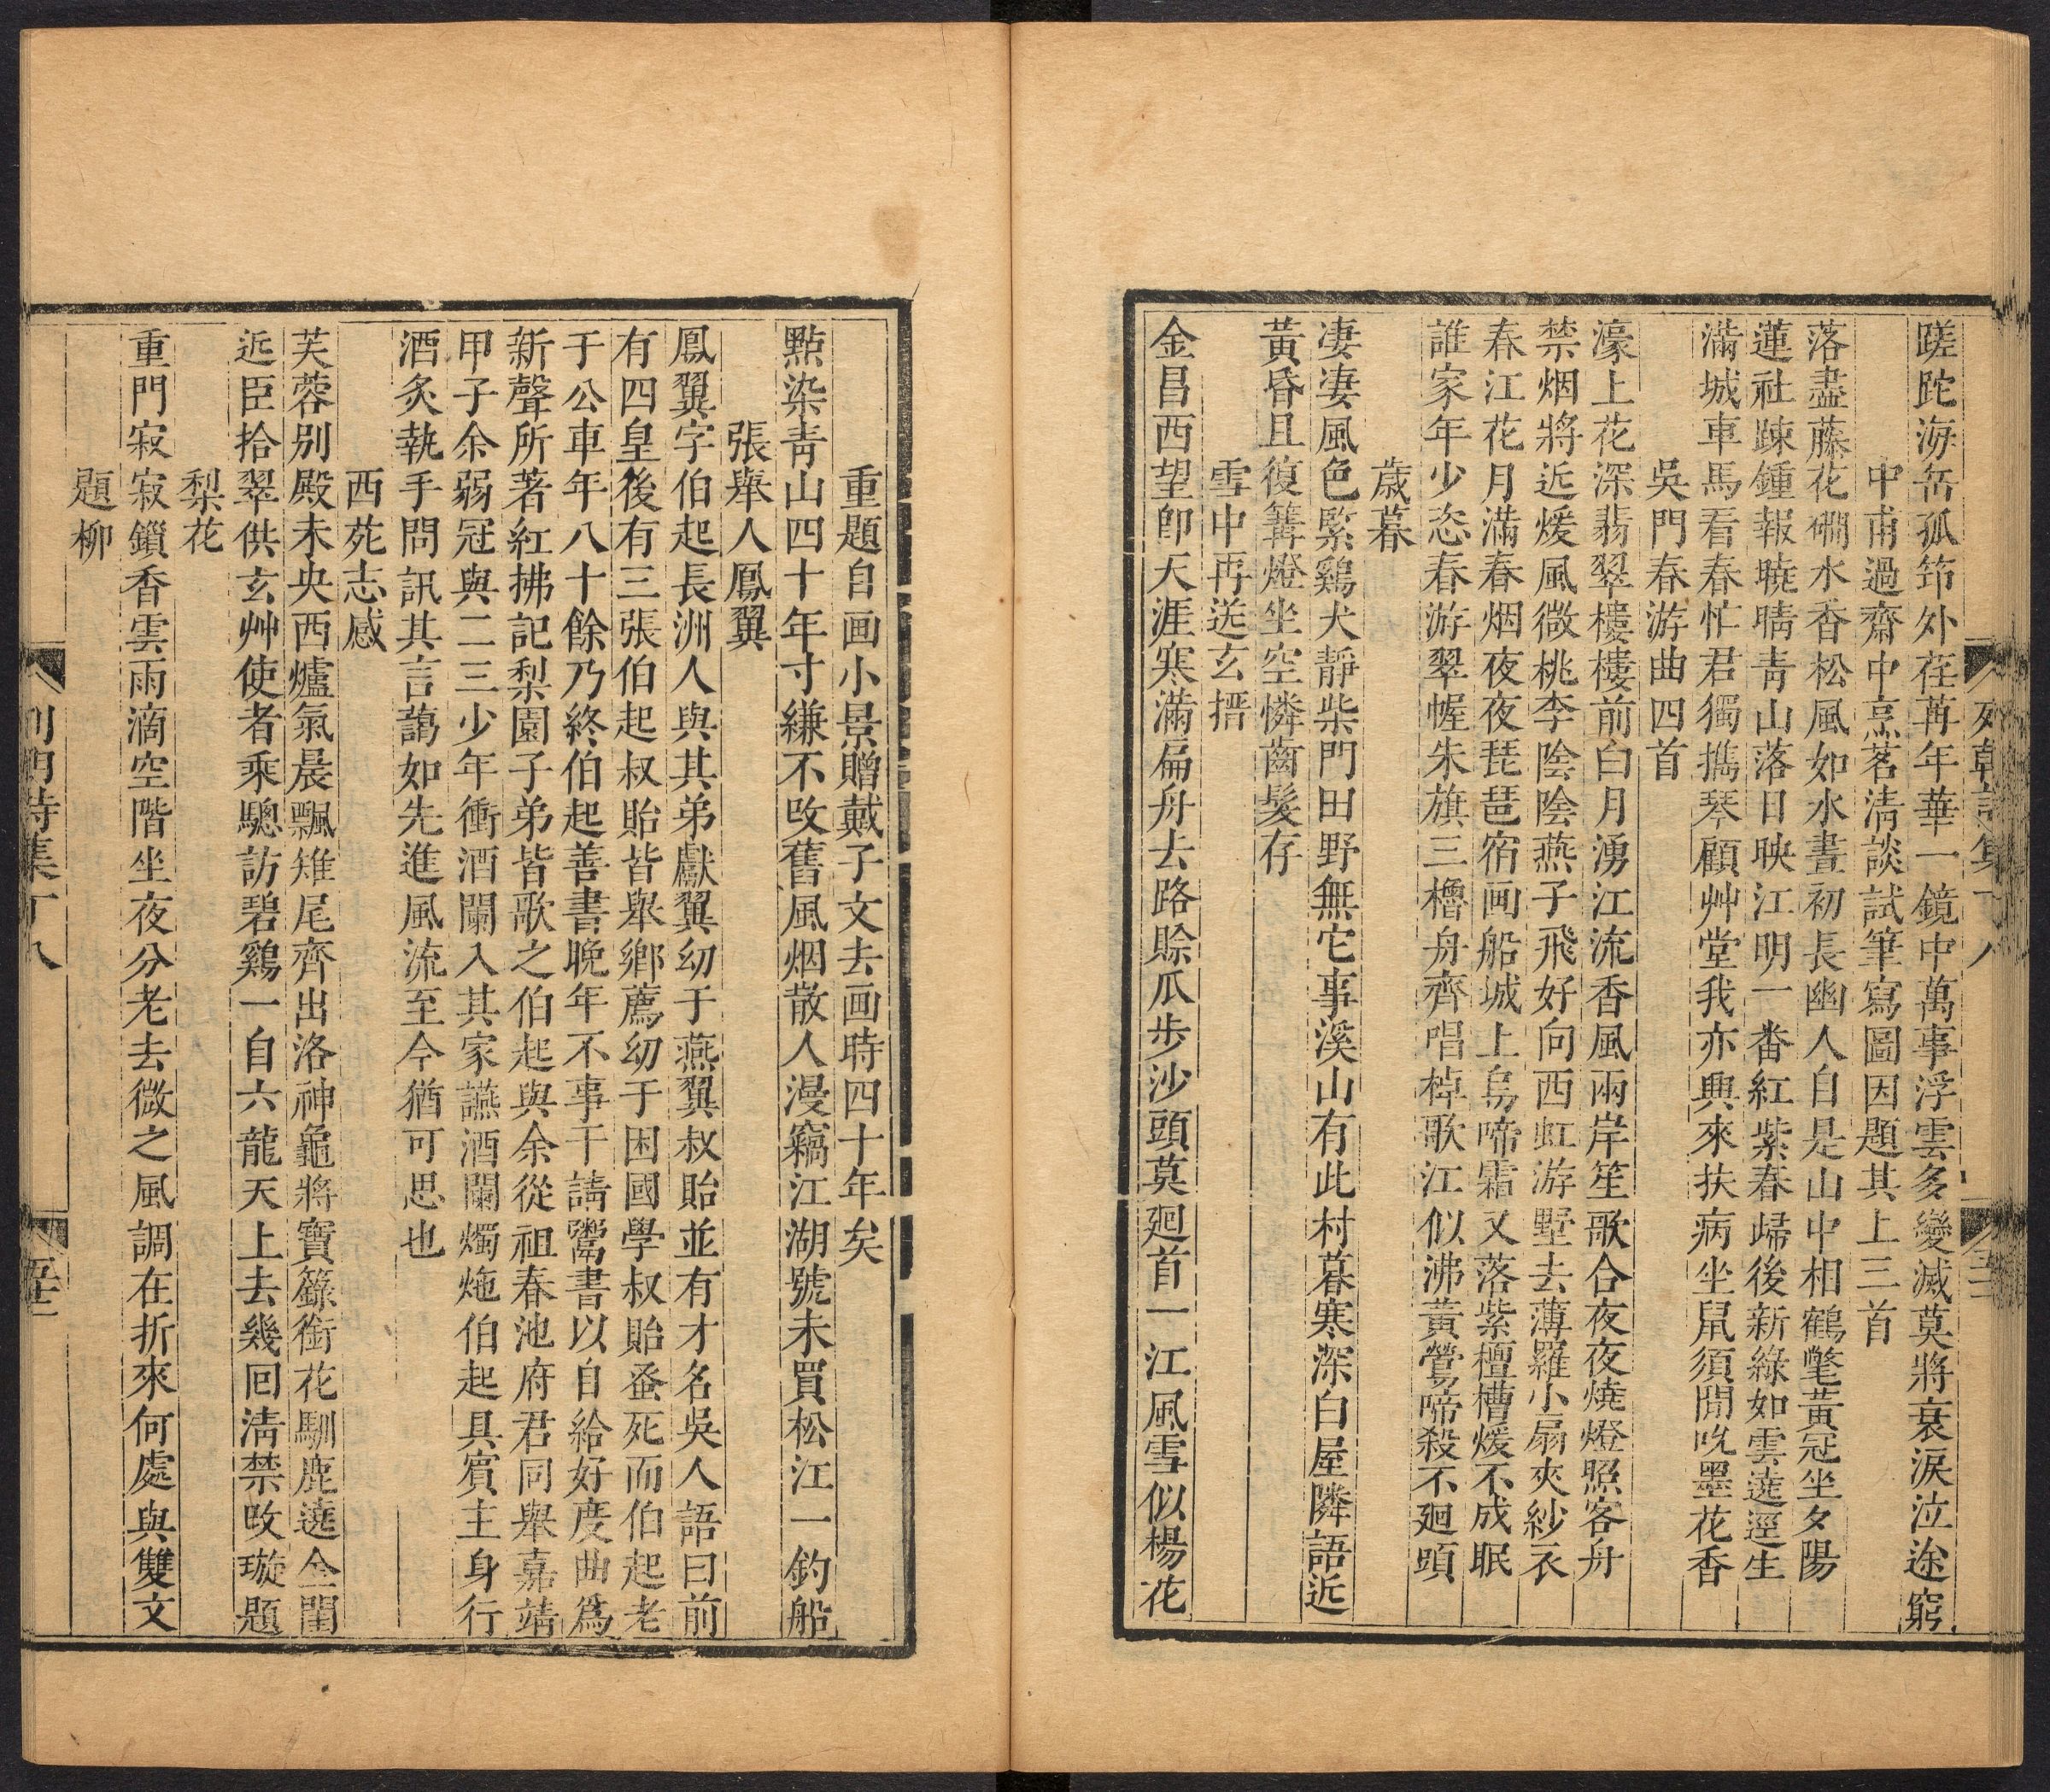 蹉跎海岳孤筇外荏苒年華一鏡中萬事浮雲多變滅莫將衰淚泣途窮
中甫過齋中烹茗清談試筆寫圖因題其上三首
落盡藤花磵水香松風如水晝初長幽人自是山中相鶴氅黃冠坐夕陽
蓮社踈鍾報曉晴青山落日映江明一番紅紫春歸後新綠如雲遶逕生
滿城車馬看春忙君獨攜琴顧艸堂我亦興來扶病坐鼠須閒吮墨花香
吳門春游曲四首
濠上花深翡翠樓樓前白月湧江流香風兩岸笙歌合夜夜燒燈照客舟
禁烟將近煖風微桃李陰陰燕子飛好向西虹游墅去薄羅小扇夾紗衣
春江花月滿春烟夜夜琵琶宿画船城上烏啼霜又落紫檀槽煖不成眠
誰家年少恣春游翠幄朱旗三櫓舟齊唱棹歌江似沸黃鶯啼殺不廻頭
歲暮
凄凄風色緊鷄犬靜柴門田野無它事溪山有此村暮寒深白屋隣語近
黃昏且復篝燈坐空憐齒髮存
雪中再送玄搢
金昌西望卽天涯寒滿扁舟去路賒瓜步沙頭莫廻首一江風雪似楊花
列朝詩集丁八
重題自画小景贈戴子文去画時四十年矣
點染青山四十年寸縑不改舊風烟散人漫竊江湖號未買松江一釣船
張舉人鳳翼
鳳翼字伯起長洲人與其弟獻翼幼于燕翼叔貽並有才名吳人語曰前
有四皇後有三張伯起叔貽皆舉鄉薦幼于困國學叔貽蚤死而伯起老
于公車年八十餘乃終伯起善書晚年不事干請鬻書以自給好度曲爲
新聲所著紅拂記梨園子弟皆歌之伯起與余從祖春池府君同舉嘉靖
甲子余弱冠與二三少年衝酒闌入其家讌酒闌燭炧伯起具賓主身行
酒炙執手問訊其言藹如先進風流至今猶可思也
西苑志感
芙蓉別殿未央西爐氣晨飄雉尾齊出洛神龜將寶籙銜花馴鹿遶金閨
近臣拾翠供玄艸使者乘驄訪碧鷄一自六龍天上去幾回淸禁改璇題
梨花
重門寂寂鎖香雲雨滴空階坐夜分老去微之風調在折來何處與雙文
題柳
列朝詩集丁八